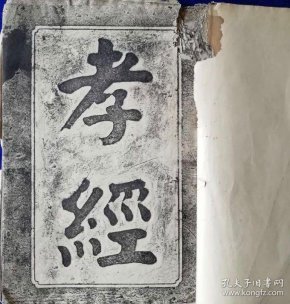 孝經
孔夫子旧书网
www.kongfz.com